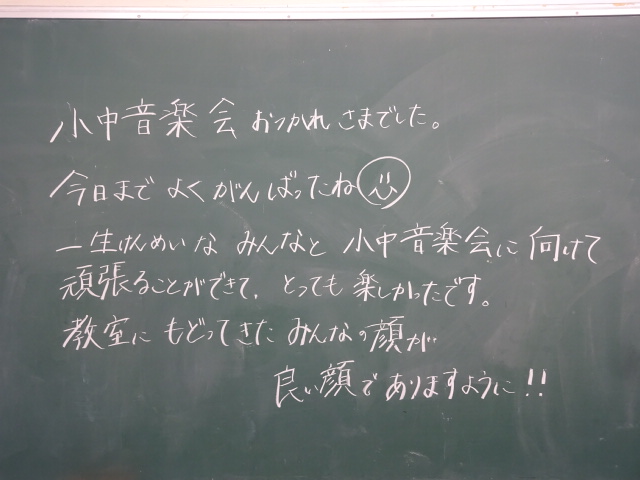 小中音楽会 おつかれさまでした。
今日まで よくがんばったね
一生けんめいな みんなと 小中音楽会に向けて
頑張ることができて、とっても楽しかったです。
教室に もどってきた みんなの顔が
良い顔で ありますように!!